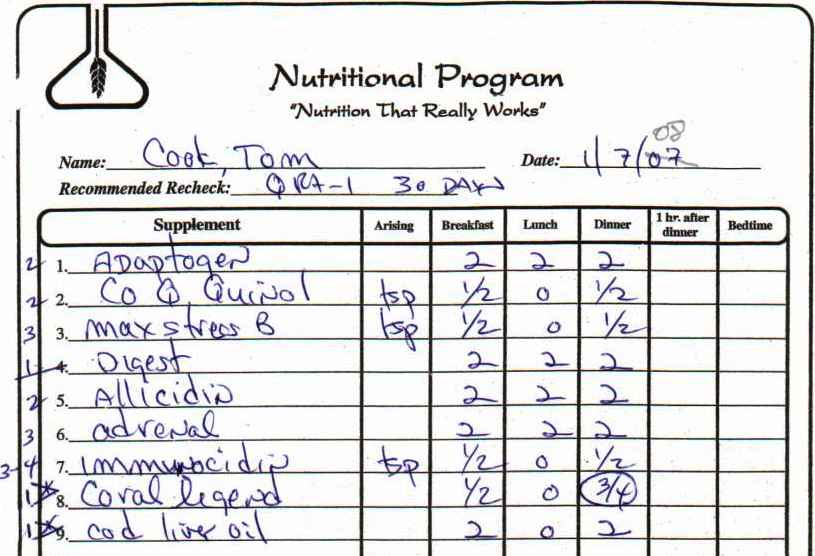 Nutritional Program
"Nutrition That Really Works"
Name: Cook, Tom Date: 1/7/07 08
Recommended Recheck: QRA-1 30 DAYS
Supplement Arising Breakfast Lunch Dinner 1 hr. after dinner Bedtime
2 1. Adaptogen 2 2 2
2 2. Co Q Quinol tsp 1/2 0 1/2
3 3. max stress B tsp 1/2 0 1/2
1 4. Digest 2 2 2
2 5. Allicidin 2 2 2
3 6. adrenal 2 2 2
3-4 7. Immunocidin tsp 1/2 0 1/2
1* 8. Coral legend 1/2 0 3/4
1* 9. cod liver oil 2 0 2